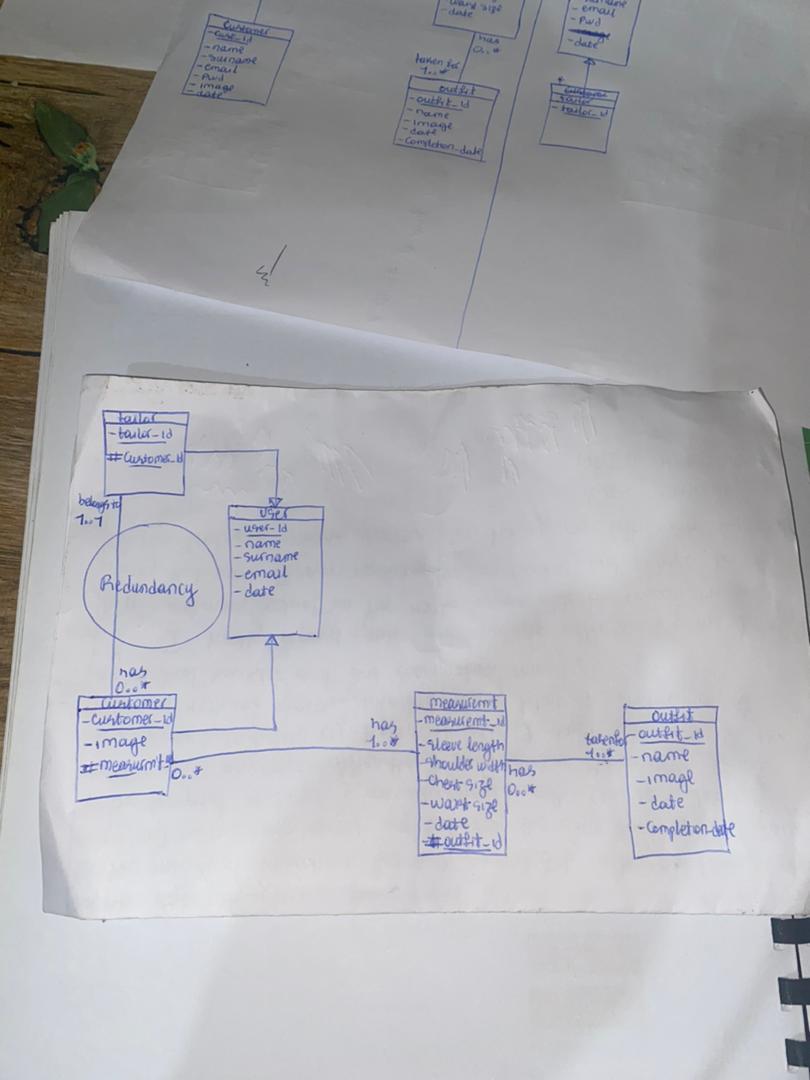 Customer
-Cust_Id
-name
-Surname
-email
-Pwd
-image
date
-date
has
0..*
taken for
1..*
outfit
-outfit_Id
-name
-image
-date
-Completion_date
-email
-Pwd
-date
*
tailor
-tailor_Id
tailor
-tailor_Id
#Customer_Id
belongs to
1..1
Redundancy
user
-user_Id
-name
-Surname
-email
-date
has
0..*
Customer
-Customer_Id
-image
#measurmt
0..*
has
1..*
measuremt
-measuremt_Id
-sleeve length
-shoulder width
-Chest size
-waist size
-date
-#outfit_Id
has
0..*
taken for
1..*
outfit
-outfit_Id
-name
-image
-date
-Completion-date